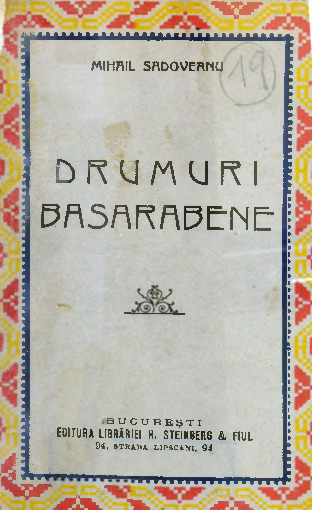 MIHAIL SADOVEANU
19
DRUMURI
BASARABENE
BUCUREȘTI
EDITURA LIBRĂRIEI H. STEINBERG & FIUL
94, STRADA LIPSCANI, 94